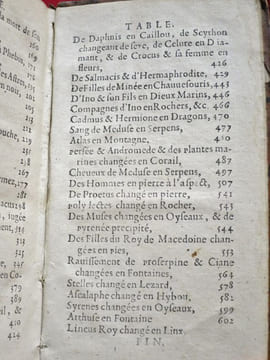 TABLE.
De Daphnis en Caillou, de Scython
changeant de sexe, de Celute en Dia-
mant, & de Crocus & sa femme en
fleurs, 426
De Salmacis & d'Hermaphrodite, 429
De Filles de Minée en Chauuesouris, 443
D'Ino & son Fils en Dieux Marins, 446
Compagnes d'Ino en Rochers, &c.
Cadmus & Hermione en Dragons, 470
Sang de Meduse en Serpens, 477
Atlas en Montagne, 480
Persée & Andromede & des plantes ma-
rines changées en Corail, 487
Cheueux de Meduse en Serpens, 497
Des Hommes en pierre à l'aspect, 507
De Proetus changé en pierre, 541
Polydectes changé en Rocher, 543
Des Muses changées en Oyseaux, & de
pyrenée precipité, 544
Des Filles du Roy de Macedoine chan-
gées en pies, 553
Rauissement de Proserpine & Ciane
changées en Fontaines, 564
Stelles changé en Lezard, 578
Ascalaphe changé en Hybou, 582
Syrenes changées en Oyseaux, 599
Arthuse en Fontaine 602
Lincus Roy changé en Linx.
FIN.